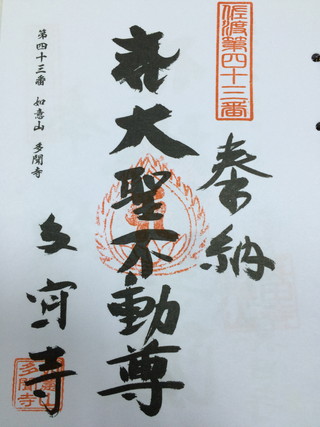 佐渡第四十三番
奉納
大聖不動尊
第四十三番 如意山 多聞寺
多聞寺
如意山
多聞寺